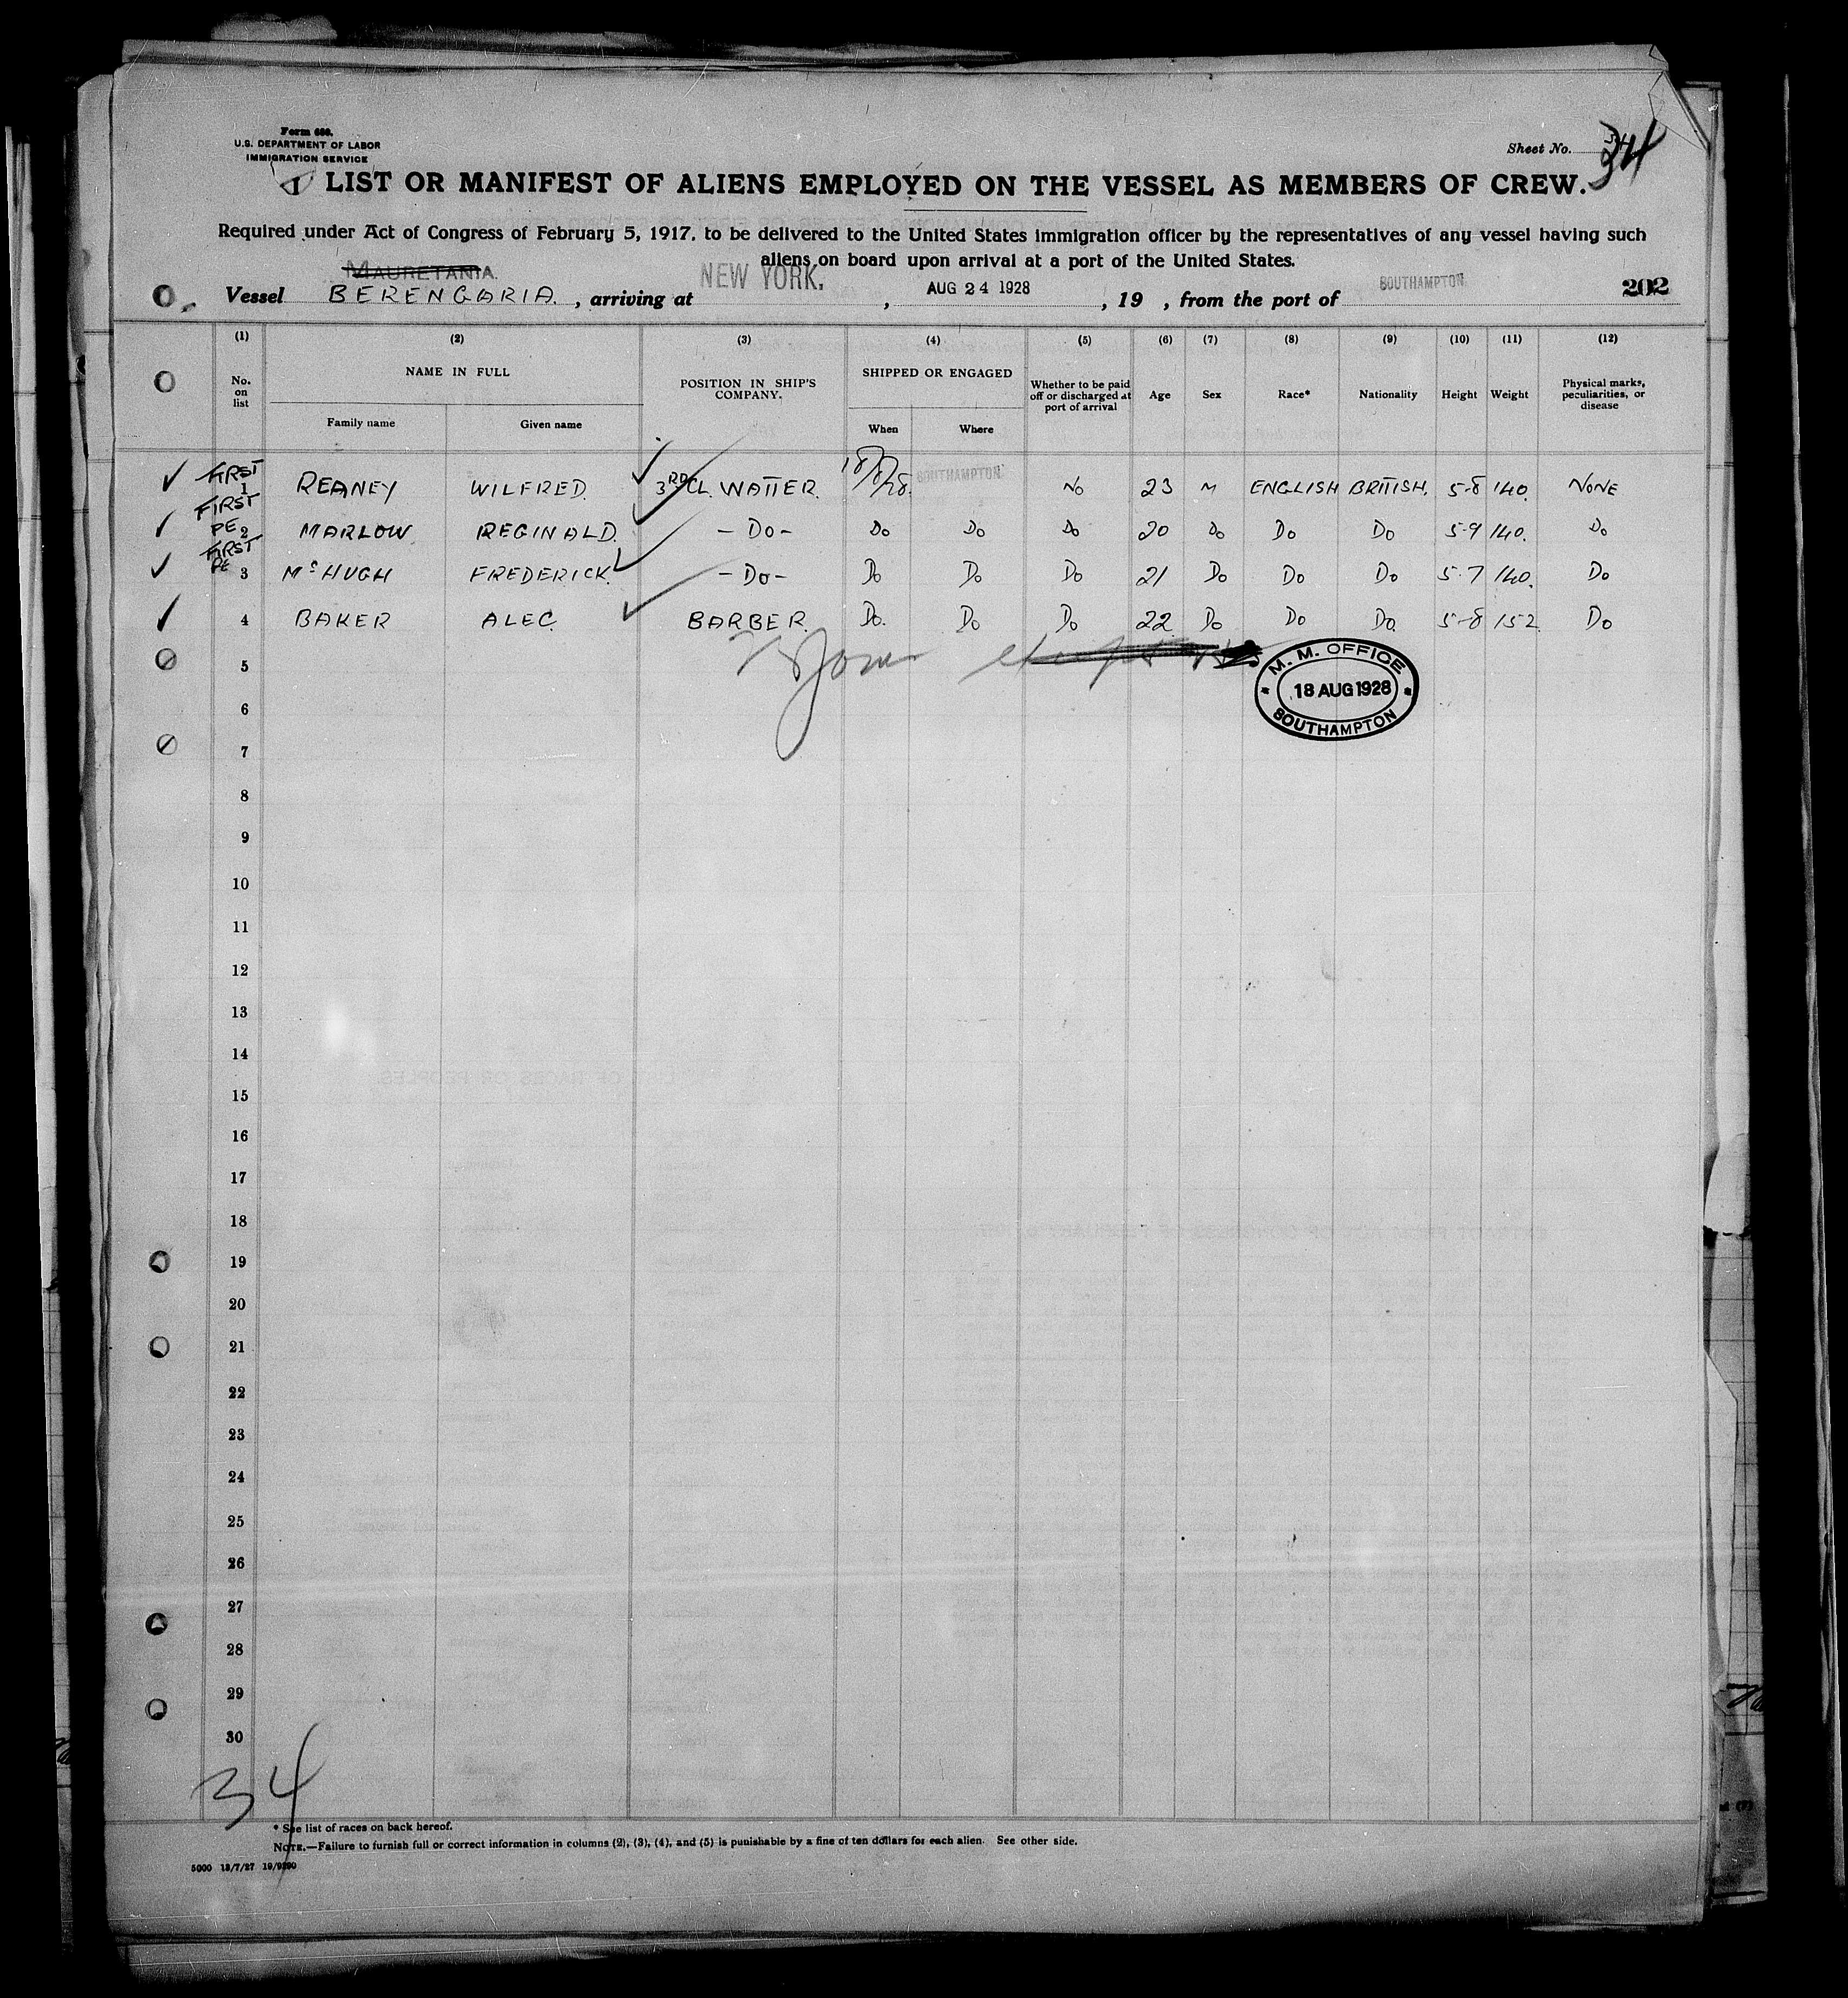 Form 680.
U.S. DEPARTMENT OF LABOR
IMMIGRATION SERVICE
Sheet No. 34
LIST OR MANIFEST OF ALIENS EMPLOYED ON THE VESSEL AS MEMBERS OF CREW.
Required under Act of Congress of February 5, 1917, to be delivered to the United States immigration officer by the representatives of any vessel having such
aliens on board upon arrival at a port of the United States.
MAURETANIA.
Vessel BERENGARIA. , arriving at NEW YORK. , AUG 24 1928 , 19 , from the port of SOUTHAMPTON 202
(1) (2) (3) (4) (5) (6) (7) (8) (9) (10) (11) (12)
No. on list NAME IN FULL POSITION IN SHIP'S COMPANY. SHIPPED OR ENGAGED Whether to be paid off or discharged at port of arrival Age Sex Race* Nationality Height Weight Physical marks, peculiarities, or disease
Family name Given name When Where
FIRST 1 REANEY WILFRED. 3RD CL. WAITER. 18/8/28. SOUTHAMPTON. No 23 M ENGLISH BRITISH. 5-8 140. NONE
FIRST PE 2 MARLOW REGINALD. - Do - Do Do Do 20 Do Do Do 5-9 140. Do
FIRST PE 3 McHUGH FREDERICK. - Do - Do Do Do 21 Do Do Do 5-7 140. Do
4 BAKER ALEC. BARBER. Do. Do Do 22 Do Do Do. 5-8 152 Do
5
M. M. OFFICE
18 AUG 1928
SOUTHAMPTON
6
7
8
9
10
11
12
13
14
15
16
17
18
19
20
21
22
23
24
25
26
27
28
29
30
34
* See list of races on back hereof.
NOTE.—Failure to furnish full or correct information in columns (2), (3), (4), and (5) is punishable by a fine of ten dollars for each alien. See other side.
5000 13/7/27